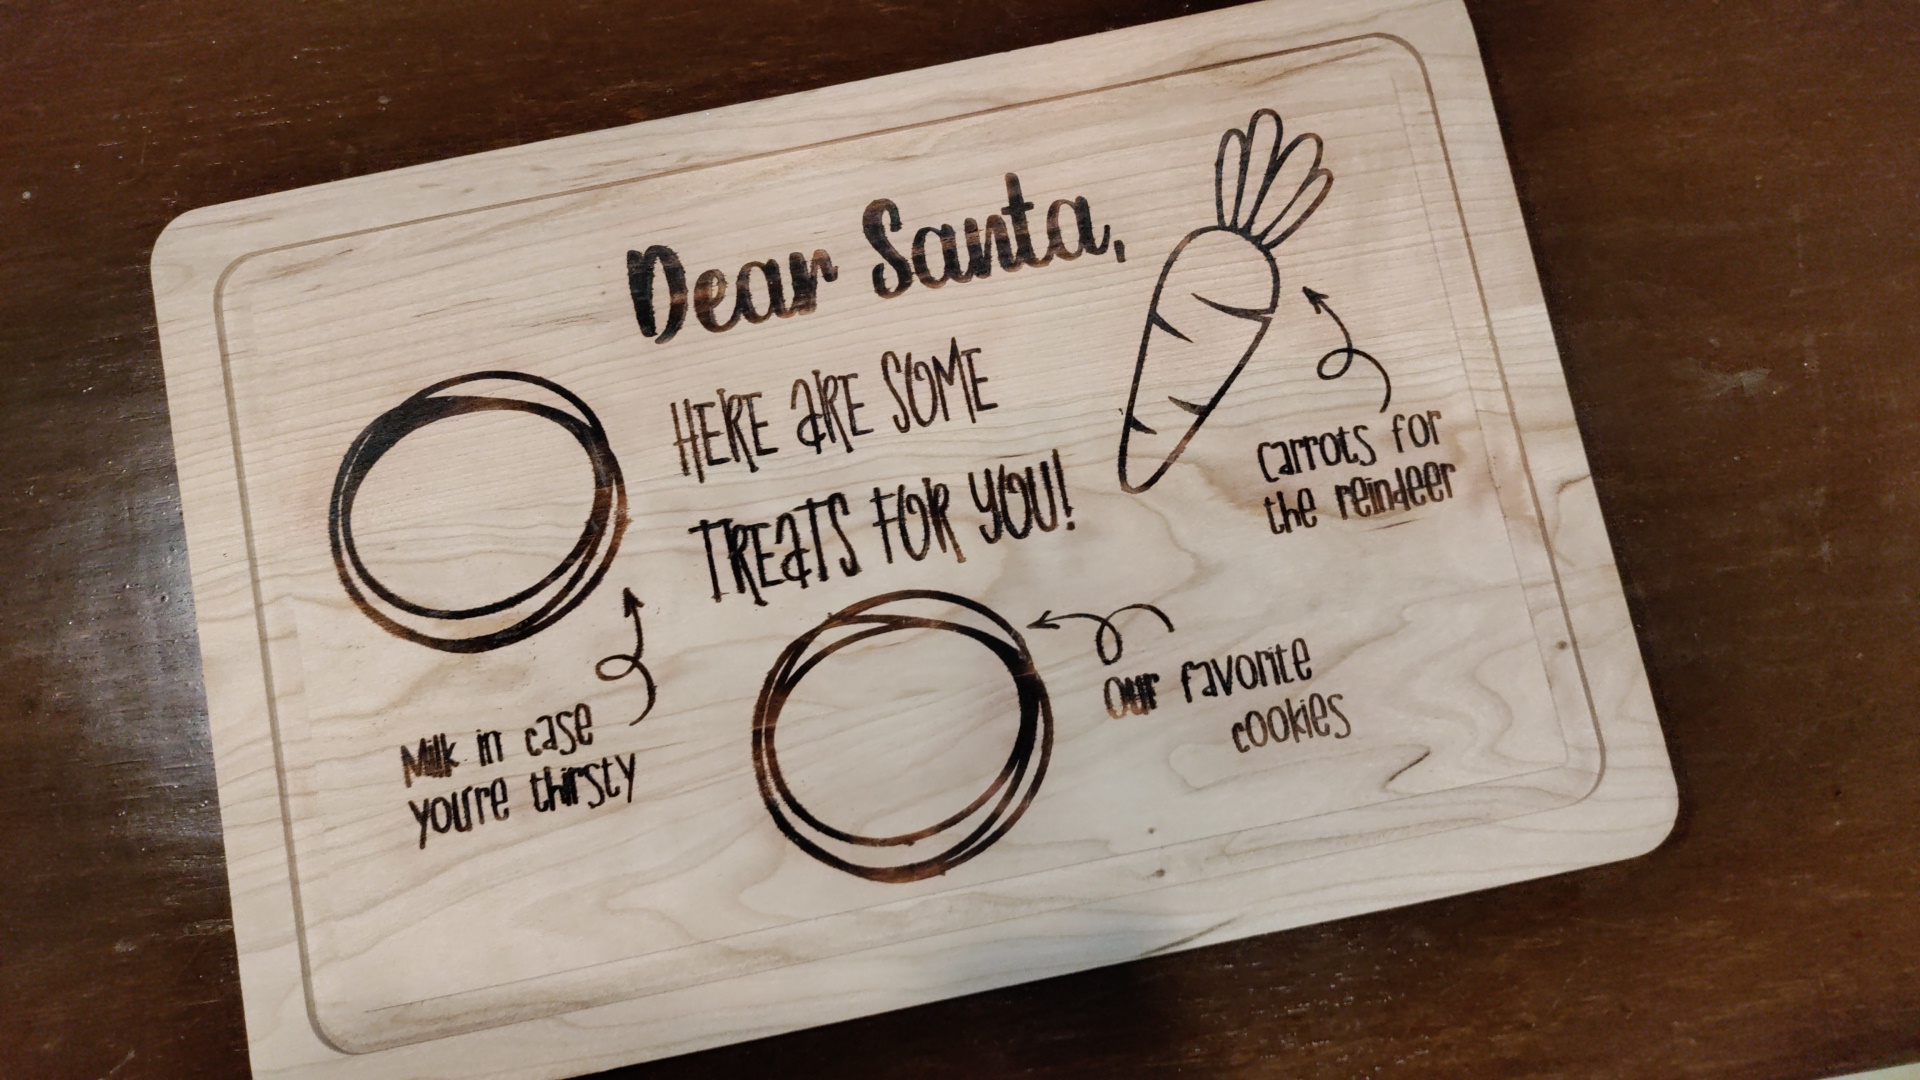 Dear Santa,
HERE aRE SOME
TREaTS FOR YOU!
carrots for
the reindeer
Milk in case
you're thirsty
our favorite
cookies